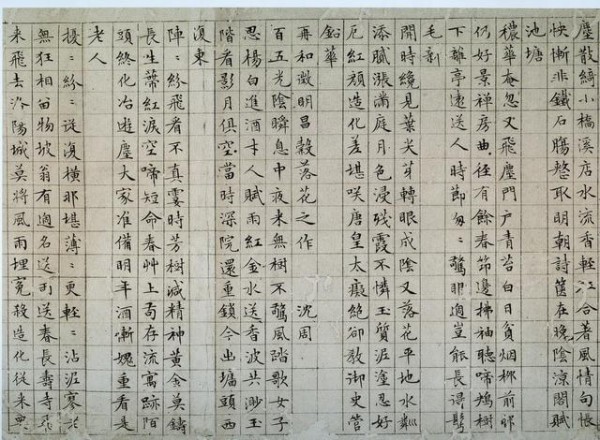 塵散綺小橋溪店水流香輕江合著風情句帳
快慚非鐵石腸整取明朝詩篋在晚陰涼閣賦
池塘
穠華奄忽又飛塵門戶青苔白日貧烟柳前邨
仍好景禪房曲徑有餘春節邊拂袖聽啼鴂樹
下離亭遠送人時節匆〻驚卽過豈能長得鬢
毛新
開時纔見葉尖芽轉眼成陰又落花平地水粼
添膩漲滿庭月色浸殘霞不憐玉質泥塗惡好
厄紅顏造化差堪咲唐皇太癡絕卻教御史管
鉛華
再和徵明昌穀落花之作 沈周
百五光陰瞬息中夜來無樹不驚風踏歌女子
思楊白進酒才人賦雨紅金水送香波共渺玉
階看影月俱空當時深院還重鎖今出墻頭西
復東
陣〻紛飛看不真霎時芳樹減精神黃金莫鑄
長生蔕紅淚空啼短命春艸上苟存流寓跡陌
頭終化冶遊塵大家准備明年酒慚愧重看是
老人
擾〻紛〻從復橫那堪薄〻更輕〻沾泥寥落
無狂相留物坡翁有過名送雨送春長壽寺飛
來飛去洛陽城莫將風雨埋冤殺造化從來要